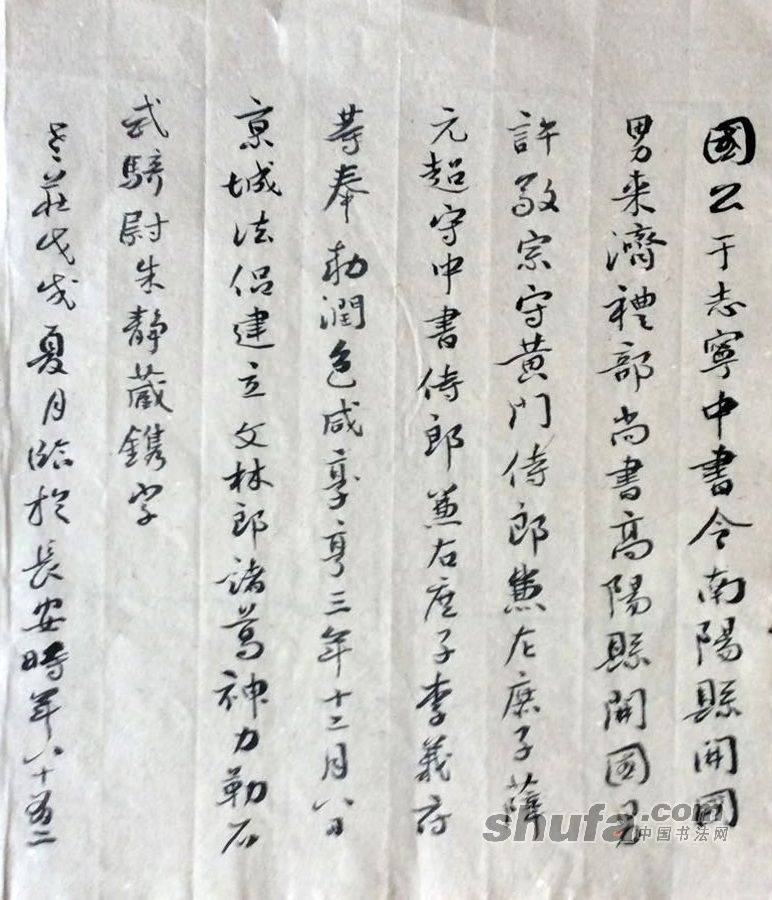 國公于志寧中書令南陽縣開國
男来濟禮部尚書高陽縣開國男
許敬宗守黄門侍郎兼左庶子薛
元超守中書侍郎兼右庶子李義府
等奉勅潤色咸享亨三年十二月八日
京城法侣建立文林郎諸葛神力勒石
武騎尉朱静藏鐫字
莊戊戌夏月臨於長安時年八十有二
shufa.com
中国书法网